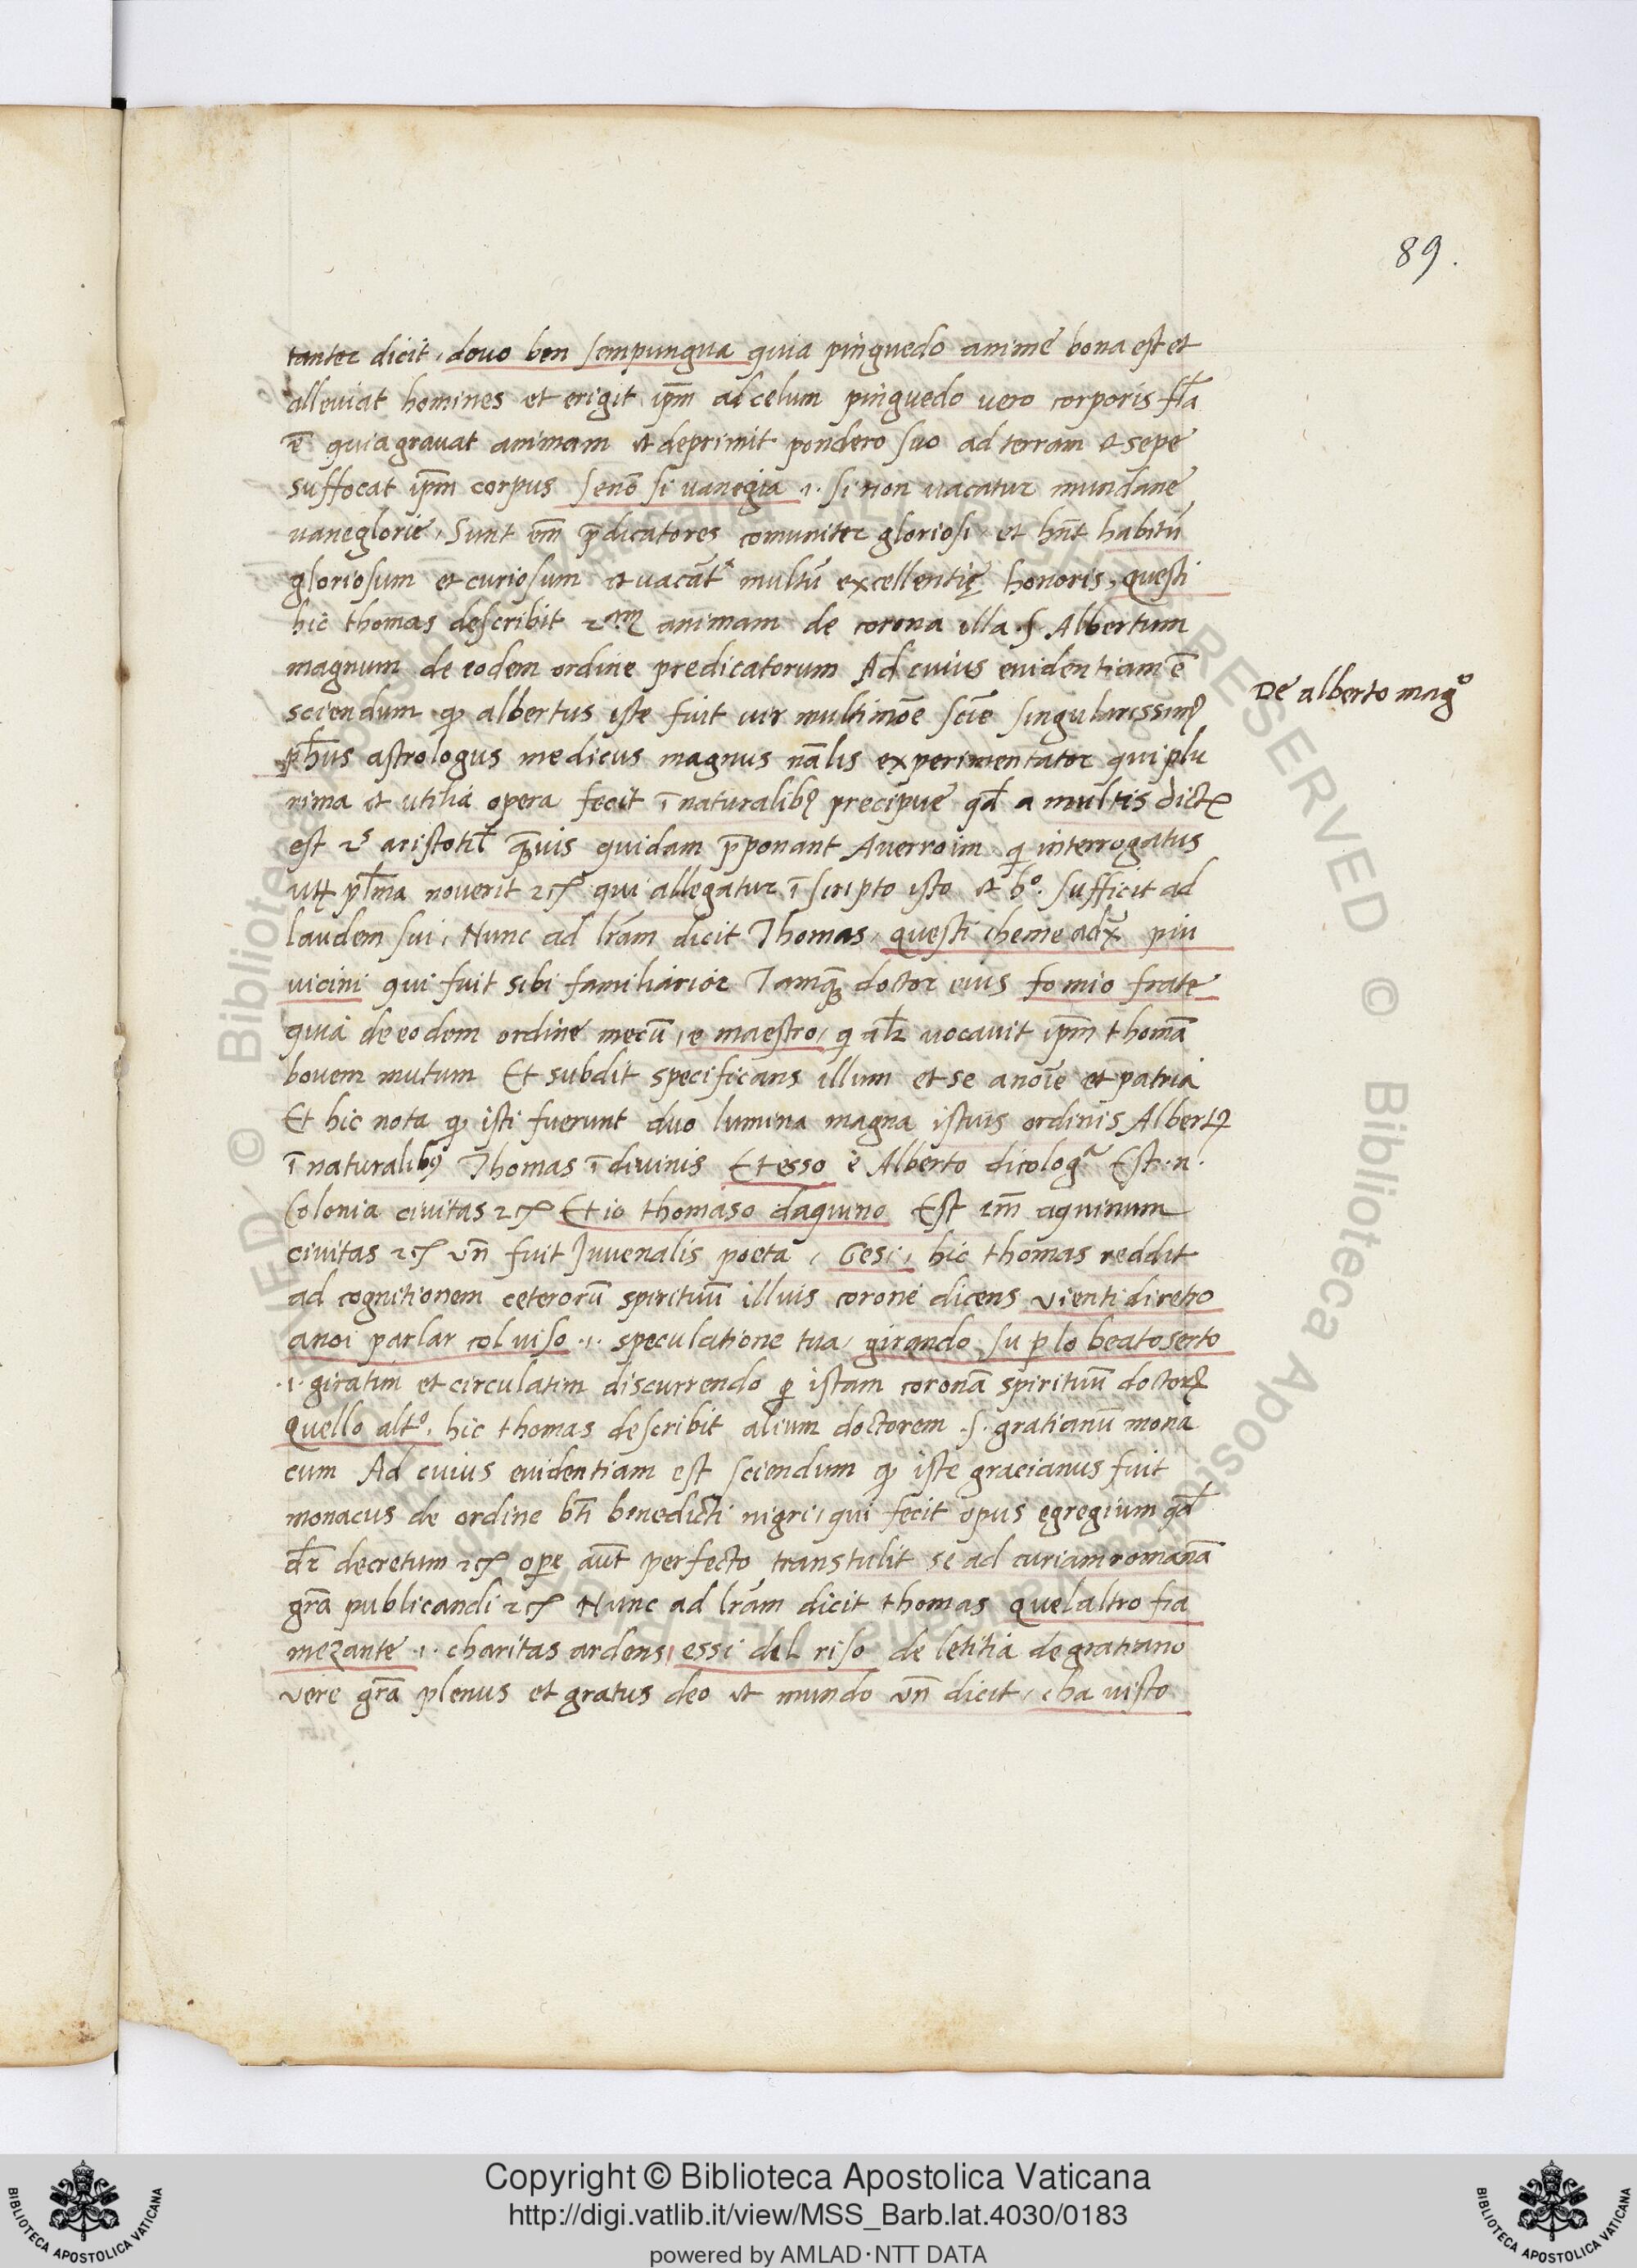 89.
tanter dicit, douo ben sempungua quia pinguedo anime bona est et
alleuiat homines et erigit ip̃m ad celum pinguedo uero corporis
ē quia grauat animam et deprimit pondero suo ad terram et sepe
suffocat ip̃m corpus senō si uanegia .i. si non uacatur mundane
uaneglorie, Sunt em̃ p̄dicatores comuniter gloriosi, et hn̄t habitū
gloriosum et curiosum et uacāt multū excellentię honoris, questi
hic thomas describit 2am animam de corona illa .s. Albertum
magnum de eodem ordine predicatorum Ad cuius euidentiam ē
De alberto mago
sciendum ꝙ albertus iste fuit uir multimōe scīe singularissimꝰ
astrologus medicus magnus nālis experimentator qui plu
rima et utilia opera fecit ī naturalibꝰ precipue qđ a multis
est 2s aristotil̃ q̄uis quidam p̄ponant Auerroim qi interrogatus
noverit qui allegatur ī scripto isto et ho. sufficit ad
laudem sui, Nunc ad lr̄am dicit Thomas, questi cheme piu
uicini qui fuit sibi familiarior Tamq̄ doctor eius fo mio frate
quia de eodem ordine mecū, e maestro, uocauit ip̃m thomā
bouem mutum Et subdit specificans illum et se anoīe et patria
Et hic nota ꝙ isti fuerunt duo lumina magna istuis ordinis Albertꝰ
ī naturalibꝰ Thomas ī diuinis Et esso è Alberto dicologa Est .n.
Colonia ciuitas ⁊c̃ Et io thomaso daquino Est em̃ aquinum
ciuitas ⁊c̃ vñ fuit Juuenalis poeta, Gesi, hic thomas reddit
ad cognitionem ceterorū spirituū illuis corone dicens vienti diretro
anoi parlar col uiso .i. speculatione tua, girando su ꝑ lo beato serto
.i. giratim et circulatim discurrendo ꝑ istam coronā spirituū doctorꝝ
Quello alto. hic thomas describit alium doctorem .s. gratianū mona
cum Ad cuius euidentiam est sciendum ꝙ iste gracianus fuit
monacus de ordine bt̄i benedicti nigri, qui fecit opus egregium qđ
dr̄ decretum ⁊c̃ ope aūt perfecto transtulit se ad curiam romanā
gr̄a publicandi ⁊c̃ Nunc ad lr̄am dicit thomas quelaltro fia
mezante .i. charitas ardens, essi del riso de letitia de gratiano
vere gr̄a plenus et gratus deo et mundo vñ dicit, cha uisto
Copyright © Biblioteca Apostolica Vaticana
http://digi.vatlib.it/view/MSS_Barb.lat.4030/0183
powered by AMLAD·NTT DATA
BIBLIOTECA APOSTOLICA VATICANA
BIBLIOTECA APOSTOLICA VATICANA